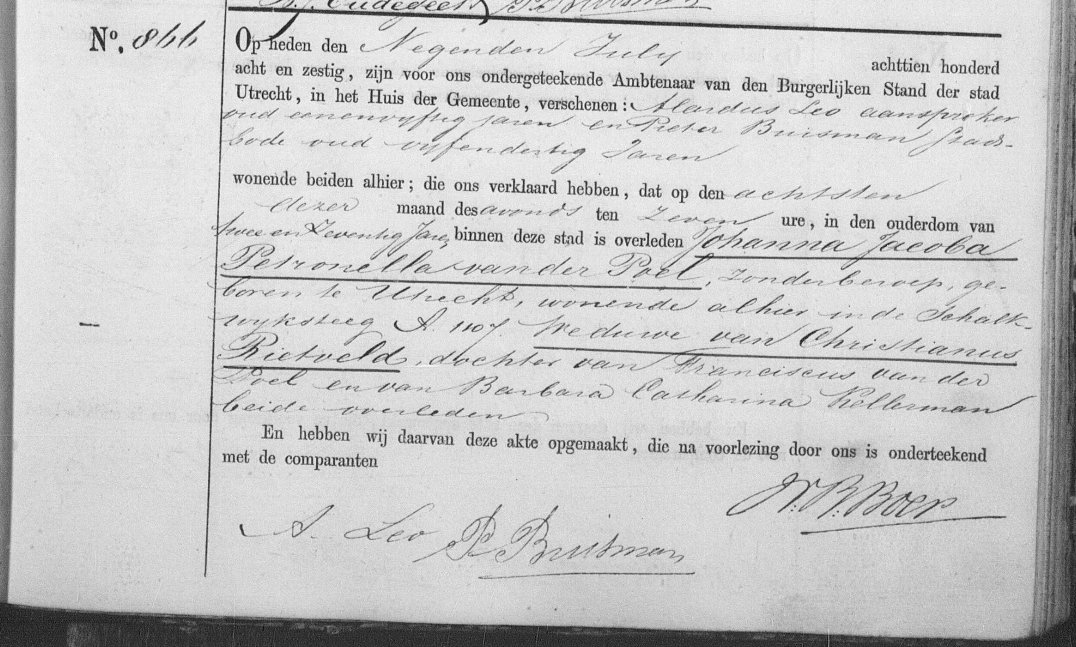 P. Buisman
No. 866
Op heden den Negenden July achttien honderd
acht en zestig, zijn voor ons ondergeteekende Ambtenaar van den Burgerlijken Stand der stad
Utrecht, in het Huis der Gemeente, verschenen: Alardus Leo aanspreker
oud eenenvyftig jaren en Pieter Buisman Stads-
bode oud vyfendertig Jaren
wonende beiden alhier; die ons verklaard hebben, dat op den achtsten
dezer maand des avonds ten Zeven ure, in den ouderdom van
twee en Zeventig Jaren binnen deze stad is overleden Johanna Jacoba
Petronella van der Poel, zonder beroep, ge-
boren te Utrecht, wonende alhier in de Schalk-
wyksteeg A. 1107. Weduwe van Christianus
Rietveld, dochter van Franciscus van der
Poel en van Barbara Catharina Kellerman
beide overleden
En hebben wij daarvan deze akte opgemaakt, die na voorlezing door ons is onderteekend
met de comparanten
A. Leo P. Buisman